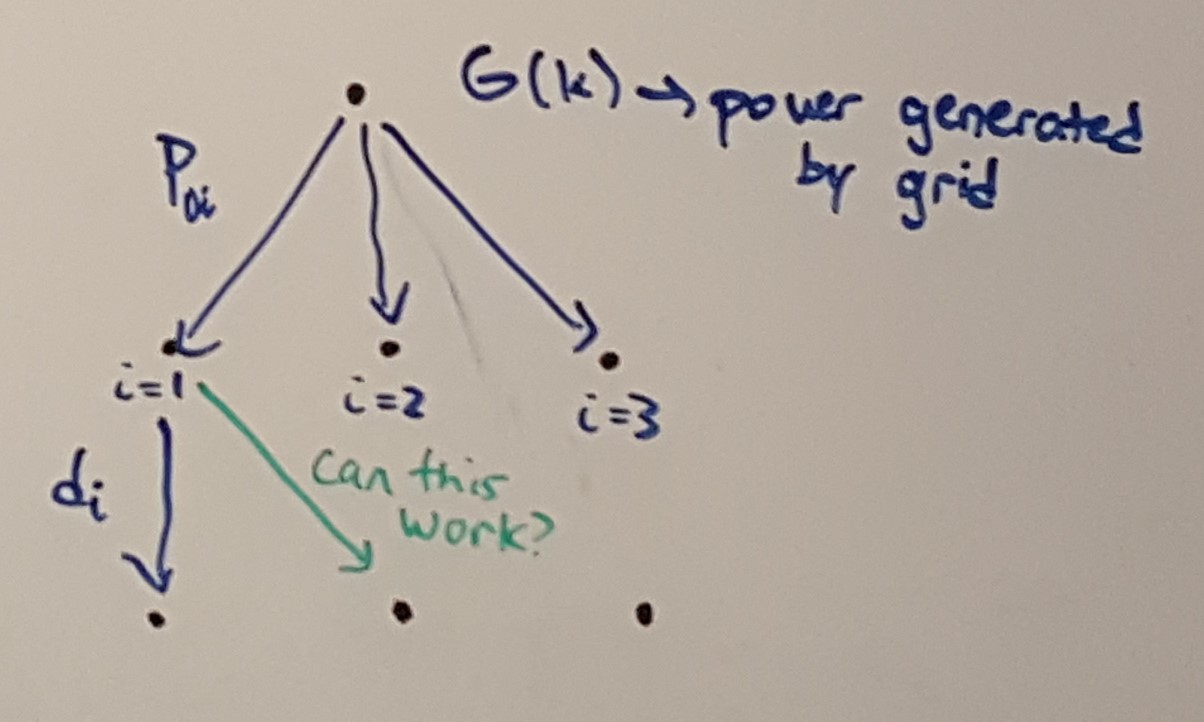 G(k) → power generated
by grid
P0i
i=1
i=2
i=3
di
Can this
work?